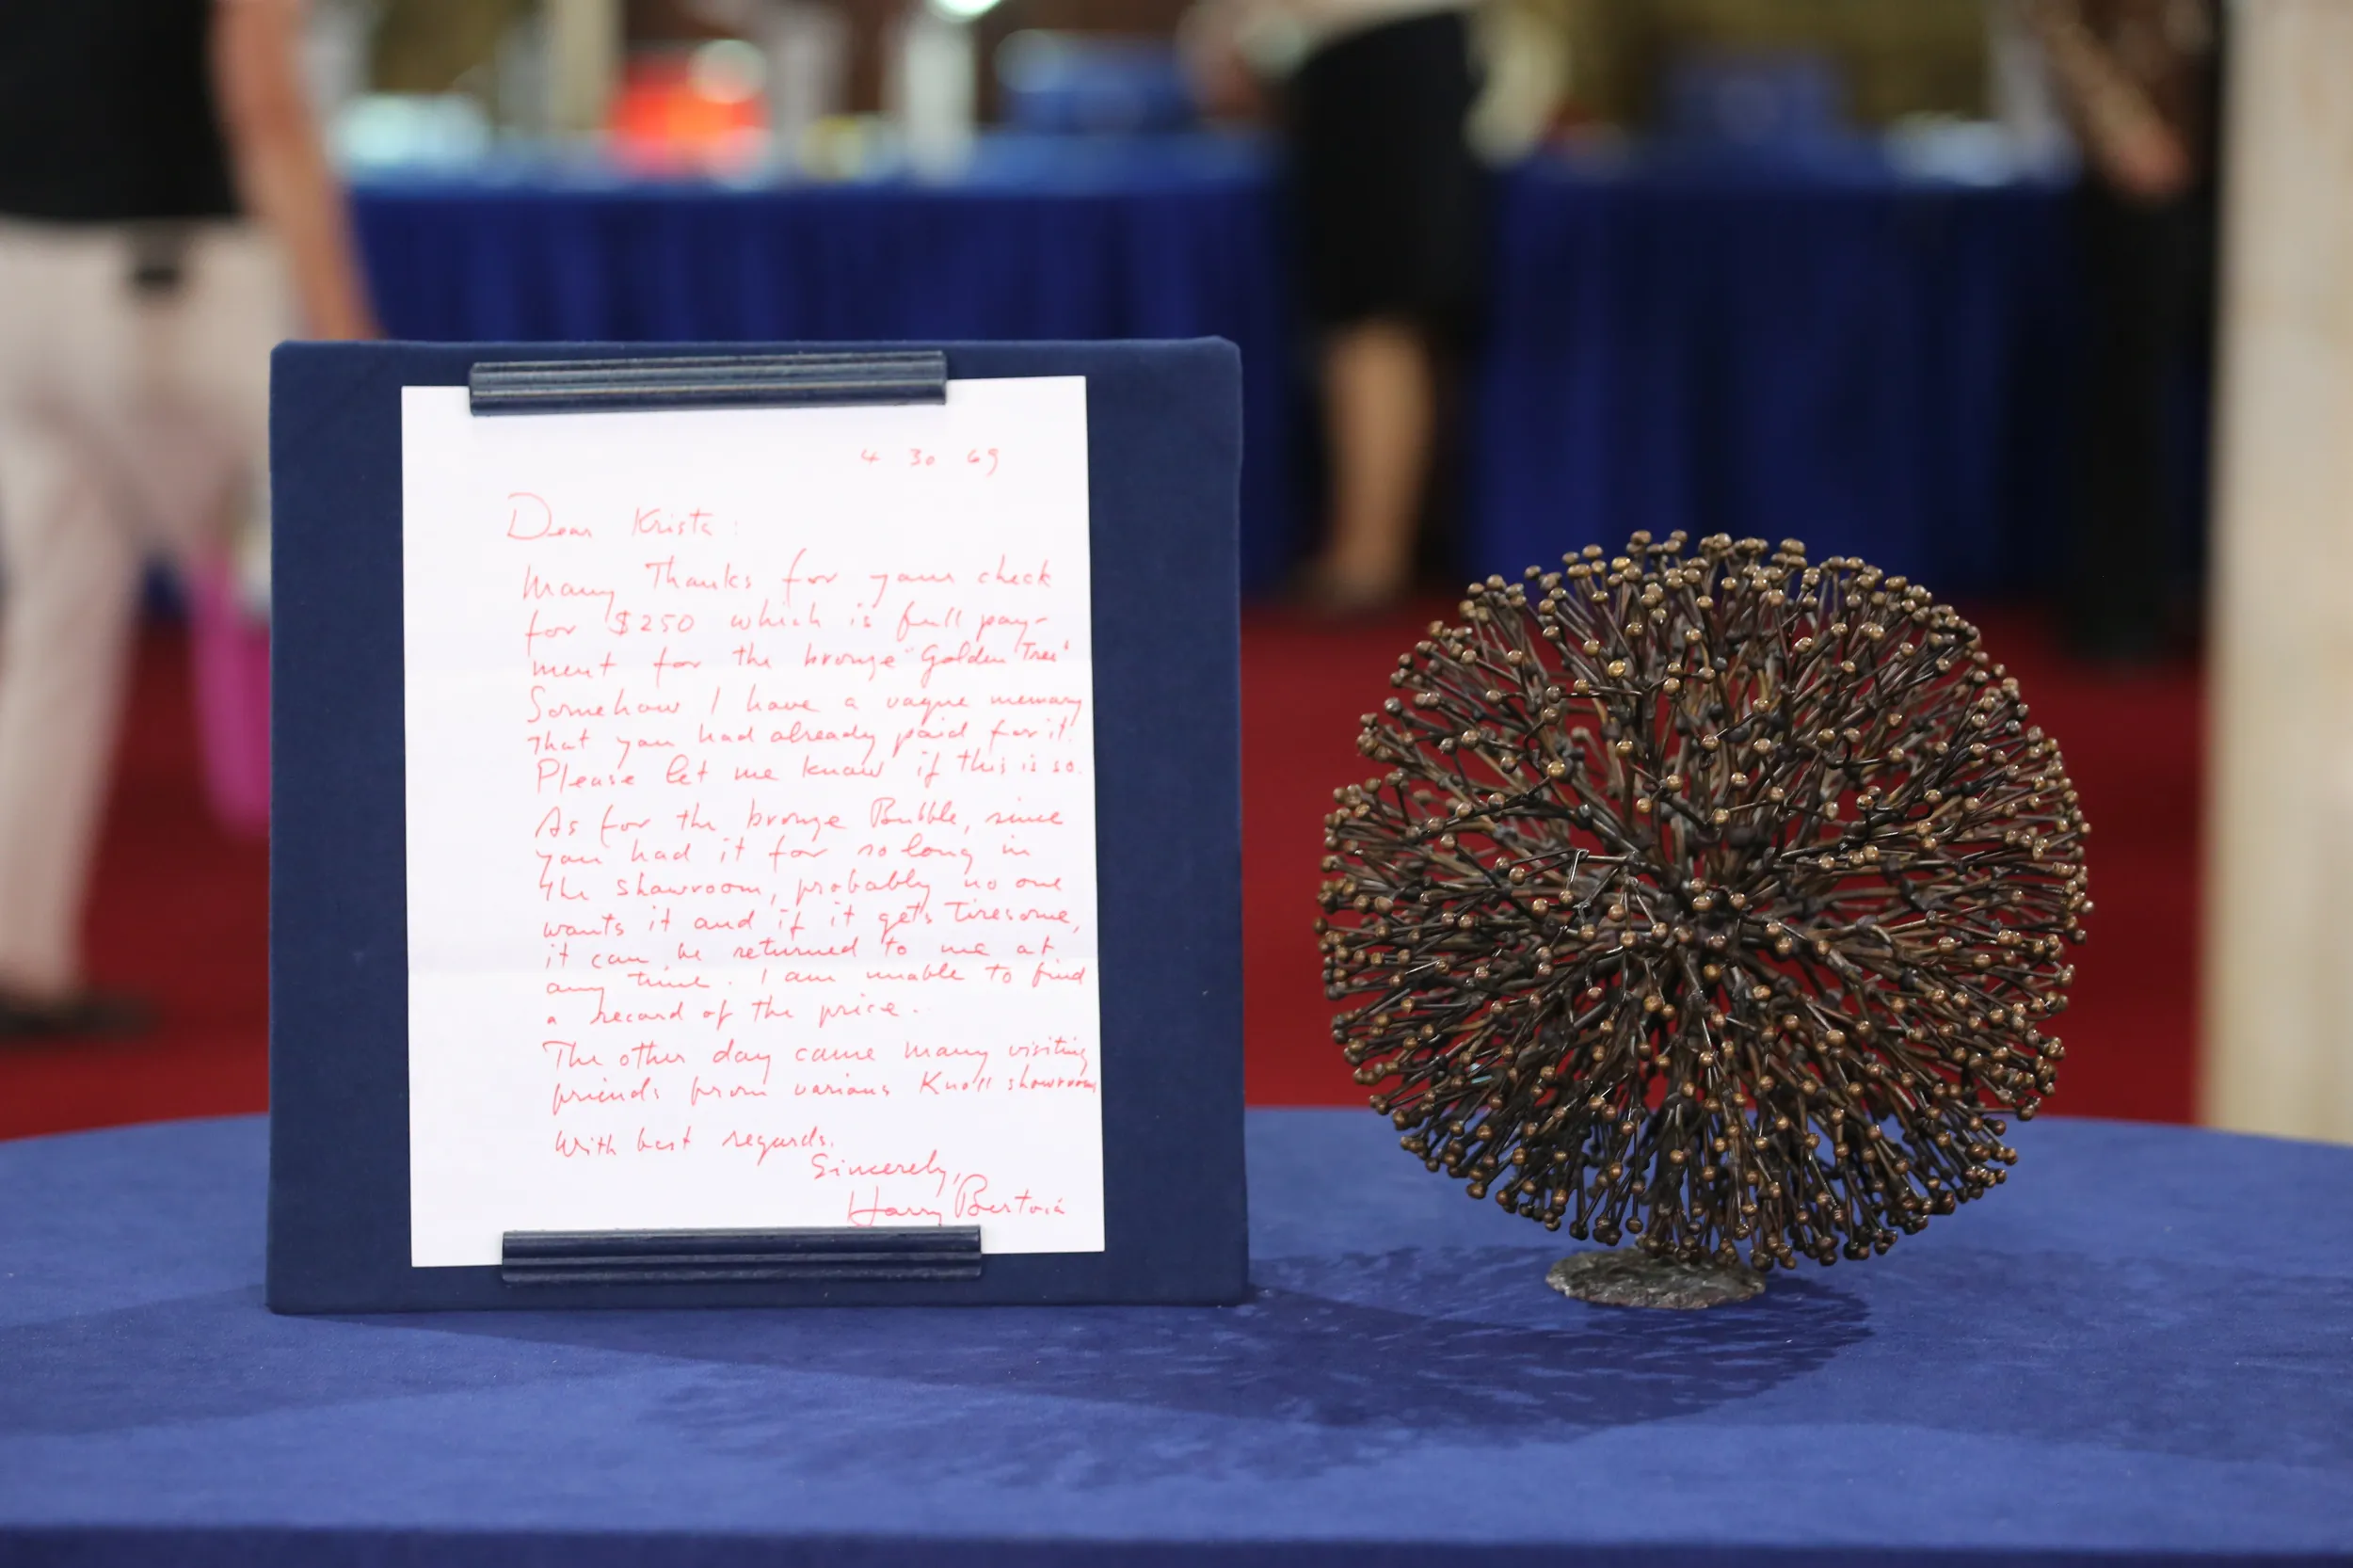 4 30 69
Dear Krista:
Many Thanks for your check
for $250 which is full pay-
ment for the bronze "Golden Tree"
Somehow I have a vague memory
that you had already paid for it.
Please let me know if this is so.
As for the bronze Bubble, since
you had it for so long in
the showroom, probably no one
wants it and if it gets tiresome,
it can be returned to me at
any time. I am unable to find
a record of the price.
The other day came many visiting
friends from various Knoll showrooms
With best regards.
Sincerely,
Harry Bertoia